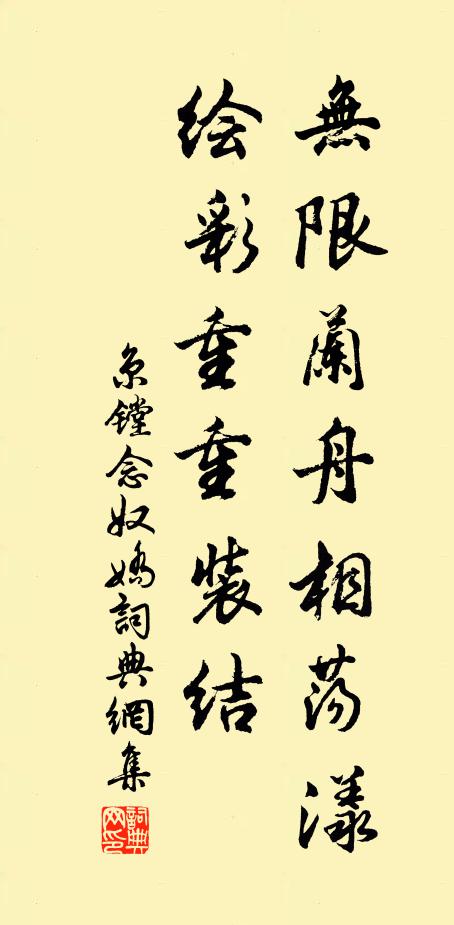 無限蘭舟相荡漾
绘彩重重装结
京镗念奴嬌詞典網集
詞典网印